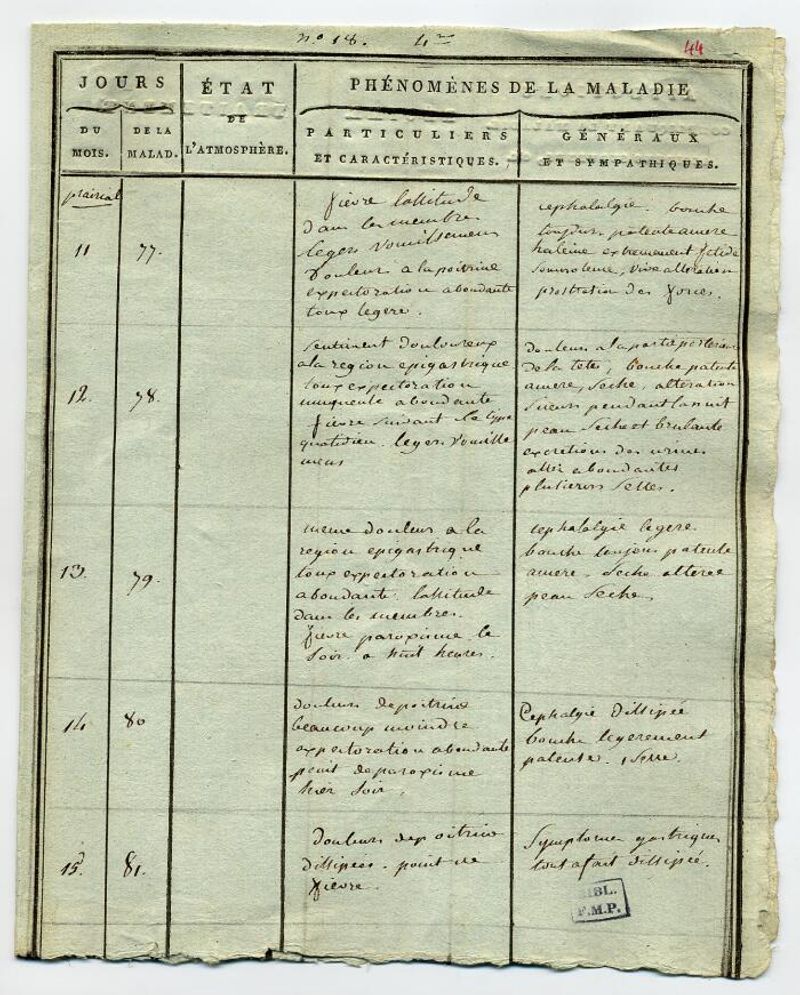 n.o 18. 4me
44
JOURS
DU MOIS.
DE LA MALAD.
ÉTAT
DE
L'ATMOSPHÈRE.
PHÉNOMÈNES DE LA MALADIE
PARTICULIERS
ET CARACTÉRISTIQUES.
GÉNÉRAUX
ET SYMPATHIQUES.
prairial
11
77.
fievre lassitude
dans les membres
legers vomissemens
douleurs a la poitrine
expectoration abondante
toux legere.
cephalalgie. bouche
toujours patente amere
haleine extremement fetide
somnolence, vive alteration
prostration des forces.
12.
78.
sentiment douloureux
a la region epigastrique
toux expectoration
muqueuse abondante
fievre suivant le type
quotidien. legers vomisse
mens
douleurs a la partie posterieure
de la tete, bouche patente
amere, seche, alteration
sueurs pendant la nuit
peau seche et brulante
excretions des urines
assez abondantes
plusieurs selles.
13.
79.
meme douleur a la
region epigastrique
toux expectoration
abondante. lassitude
dans les membres.
fievre paroxisme le
soir. a huit heures.
cephalalgie legere.
bouche toujours patente
amere. seche alteree
peau seche.
14
80
douleurs de poitrine
beaucoup moindre
expectoration abondante
point de paroxisme
hier soir.
Cephalgie dissipée
bouche legerement
patente.
15.
81.
douleurs de poitrine
dissipées. point de
fievre.
Symptomes gastriques
tout a fait dissipée.
BIBL.
F.M.P.